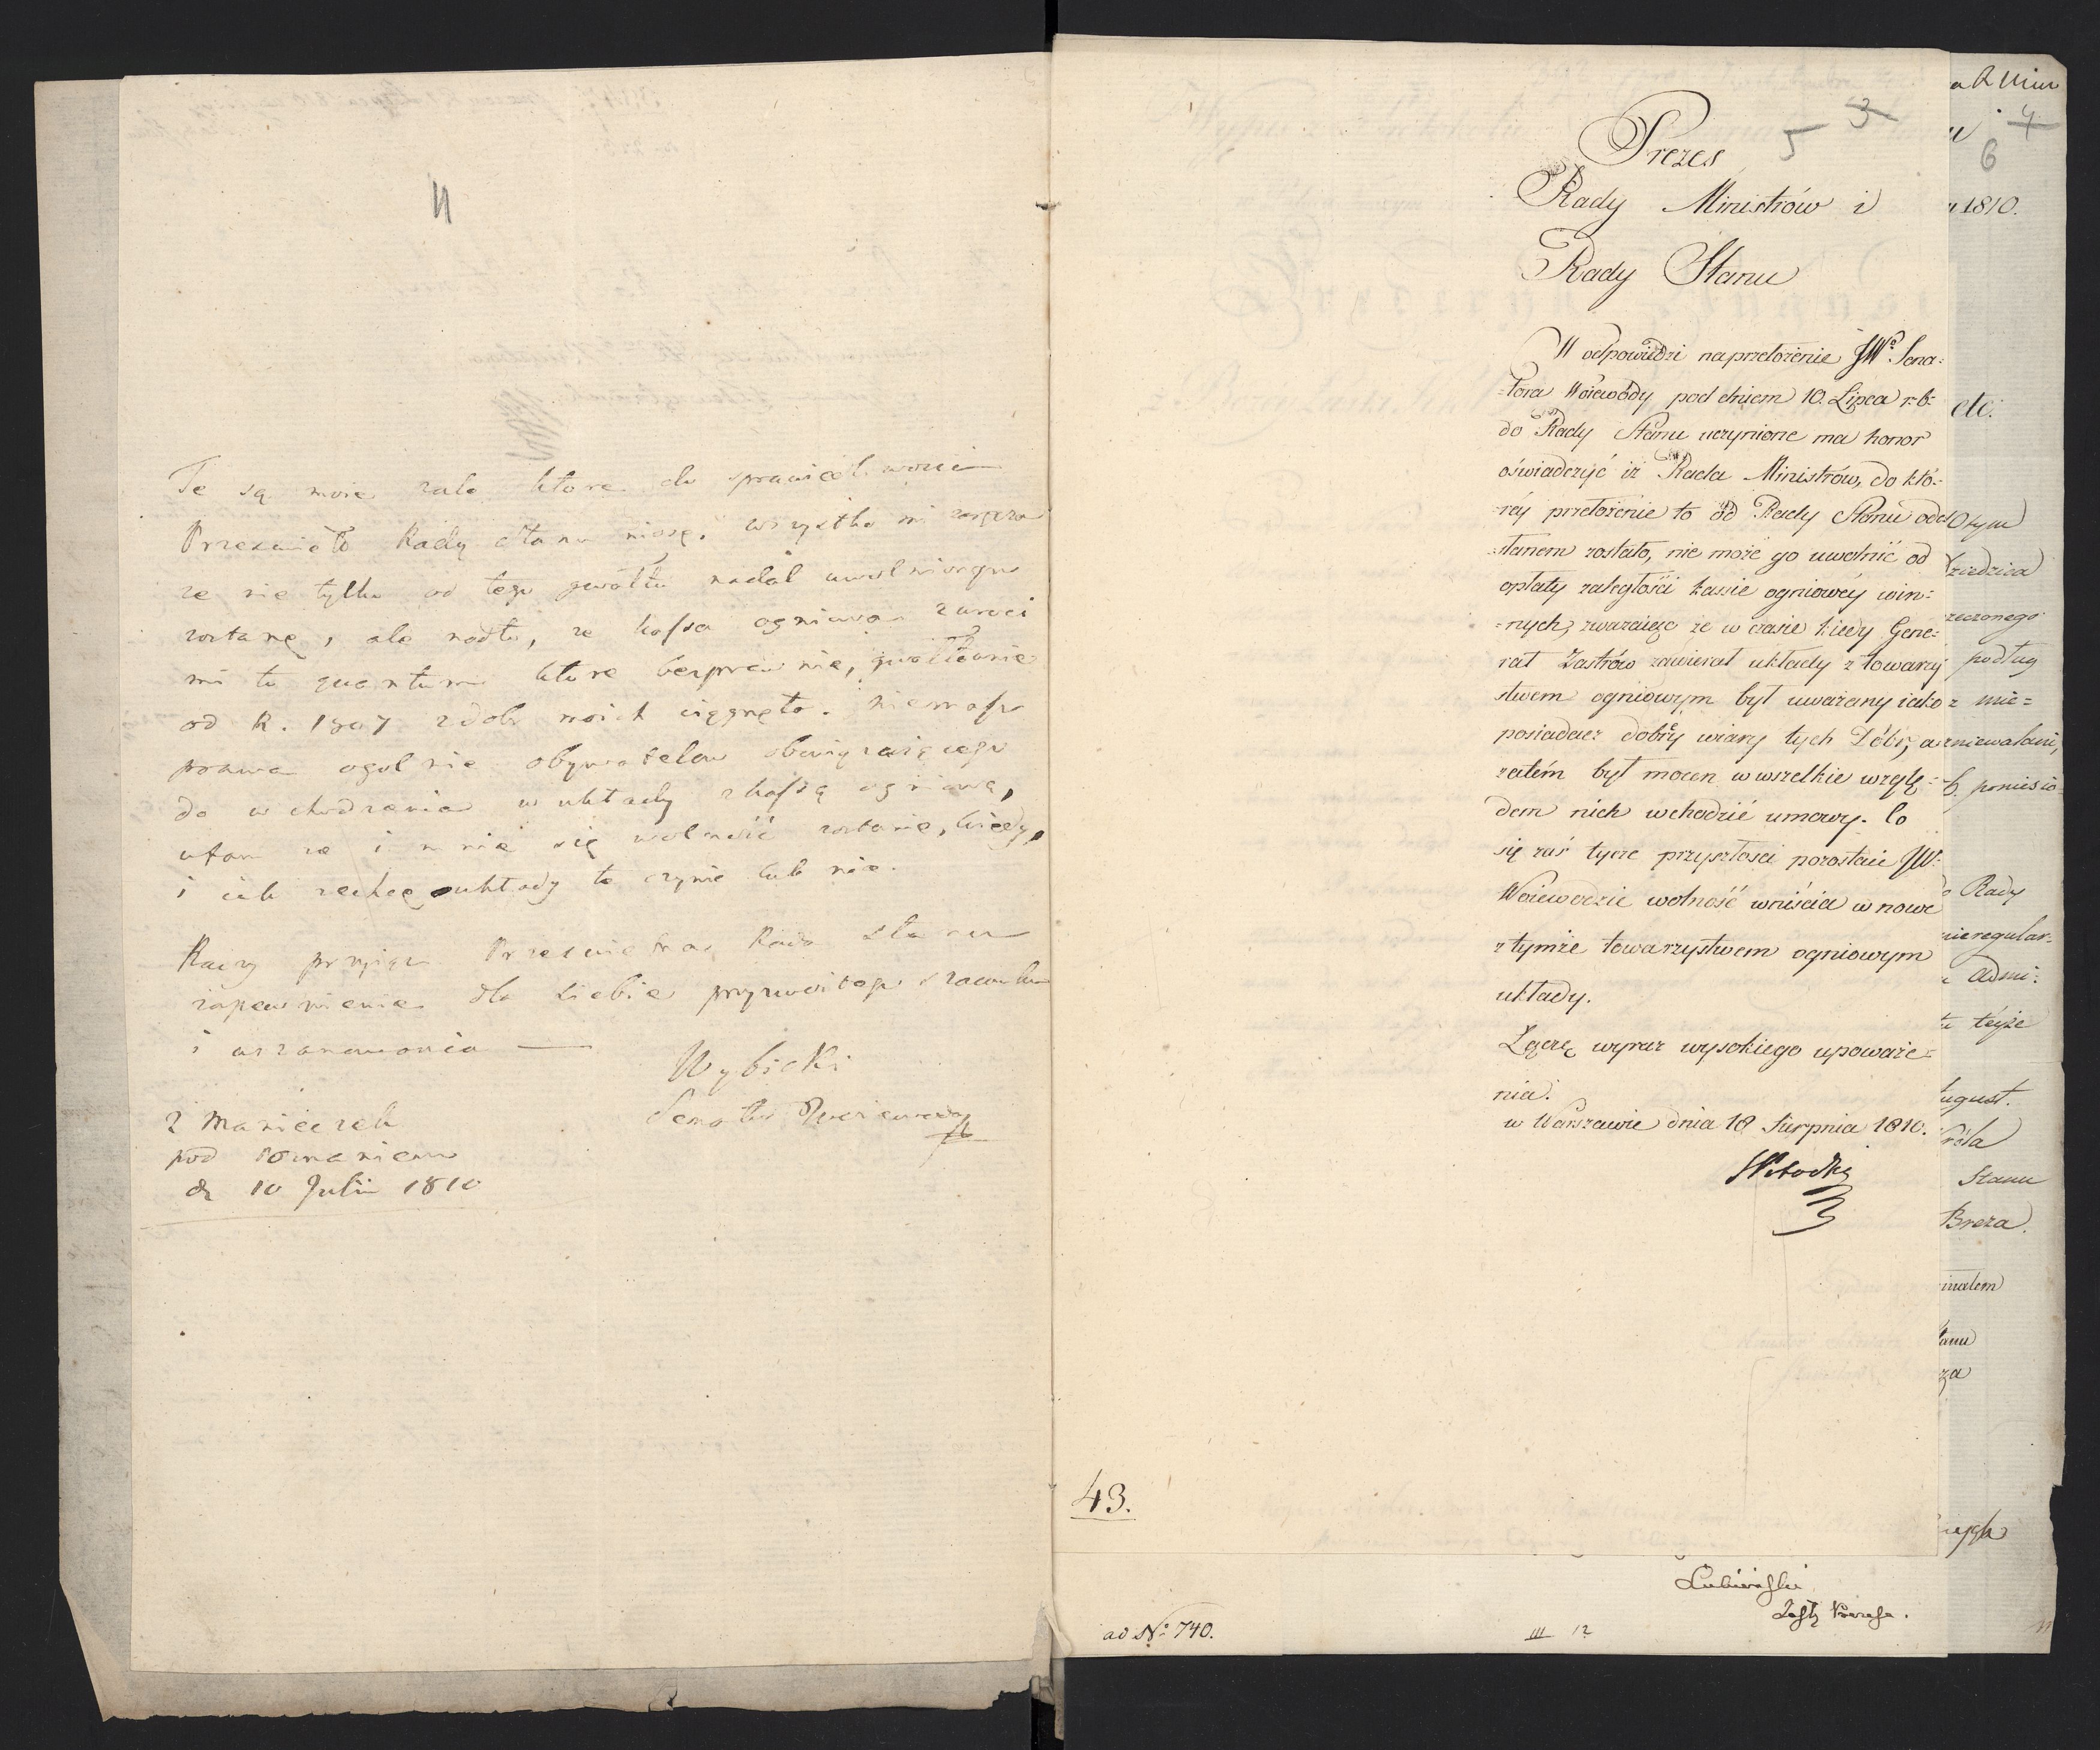 4
Te są moie żale ktore do sprawiedliwości
Prześwieto Rady stanu niosę, wszystko mi
ze nie tylko od tego gwałtu nadal uwolniongm
zostanę, ale nadto, ze kassa ogniowa zwroci
mi to quantum ktore bezprawnie, gwałtownie
od R. 1807 z dobr moich ciągnęło. Niemasz
prawa ogolnie obywatelow obowięzuięcego
do wchodzenia w układy z kassą ogniową,
ufam ze i mnie się wolność zostanie, kiedy,
i iak zechcę układy te czynie lub nie.
Raczy przyiąć Prześwietna Rada Stanu
zapewnienie dla siebie przyzwoitego szacunku
i uszanowania —
Wybicki
Senator Woiewoda
z Manieczek
pod Poznaniem
d. 10 Julii 1810
Prezes
5 3
Rady Ministrów i
Rady Stanu
W odpowiedzi na przełożenie JWo. Sena=
=tora Woiewody pod dniem 10. Lipca r: b:
do Rady Stanu uczynione ma honor
oświadczyć iż Rada Ministrów, do któ=
=réy przełożenie to od Rady Stanu ode=
=słanem zostało, nie może go uwolnić od
opłaty zaległości kassie ogniowéy win=
=nych, zważaiąc że w czasie kiedy Gene=
rał Zastrów zawierał układy z towarzy
stwem ogniowym był uważany iako
posiadacz dobréy wiary tych Dóbr, a
zatém był mocen w wszelkie wzglę=
dem nich wchodzić umowy. Co
się zaś tycze przyszłości pozostaie JW:
Woiewodzie wolność wniścia w nowe
z tymże towarzystwem ogniowym
układy.
Łączę wyraz wysokiego upoważe=
nia.
w Warszawie dnia 18 Sierpnia 1810.
43.
Lubieński
Zastę Prezesa.
ad No: 740.
III 12
a R Min
4
6
1810.
etc.
O tym
dziedzica
rzeczonego
podług
z mie=
zniewalani,
b. poniesio
Rady
nieregular=
Admi=
téyże
August.
Króla
Stanu
Breza.